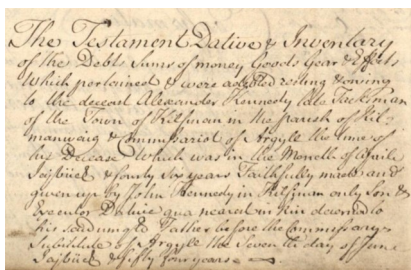 The Testament Dative & Inventary
of the Debts Sums of money Goods Gear & Effects
Which pertained & were adebted resting & owing
to the deceast Alexander Kennedy late Tacksman
of the Town of Kilfinan in the parish of Kil=
manivaig & Commissariot of Argyle the time of
his Decease Which was in the Moneth of Aprile
Sajviict & fourty six years Faithfully made and
given up by John Kennedy in Kilfinan only Son &
Executor Dative qua nearest in kin decerned to
his said umqll Father before the Commissary
Substitute of Argyle the Seventh day of June
Sajviict & fifty four years